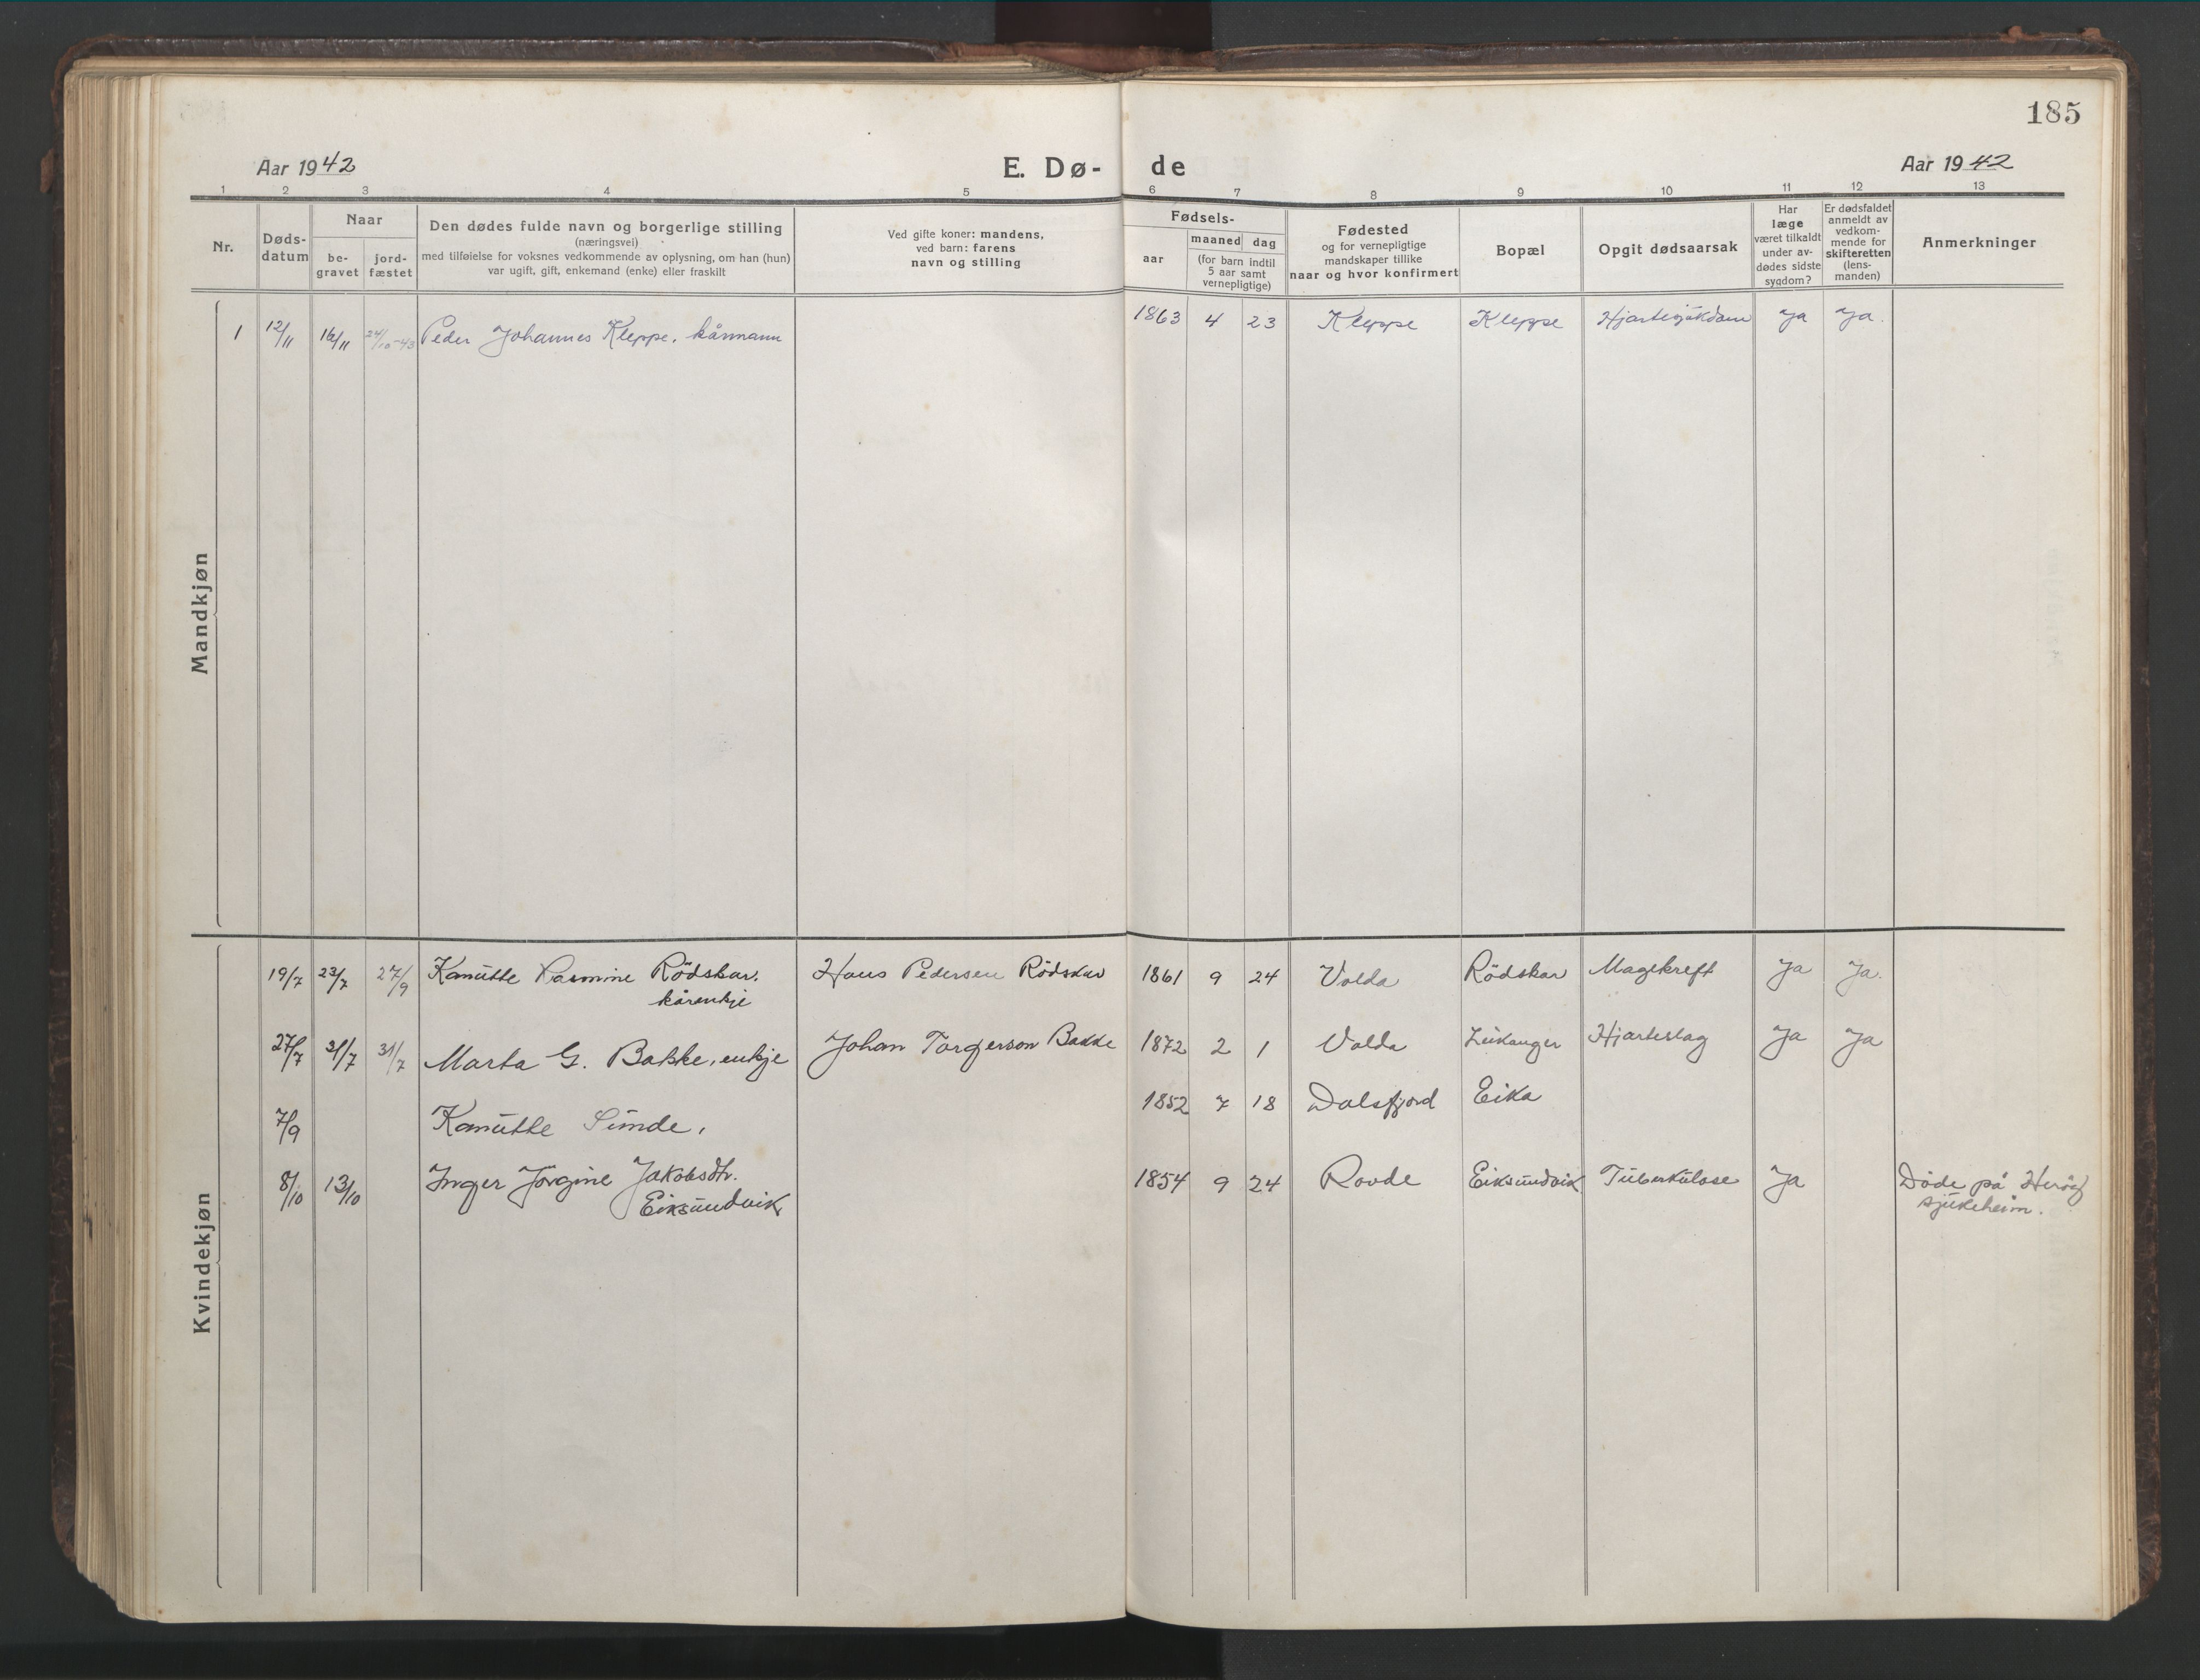 185
Aar 1942 E. Dø- de Aar 1942
1 2 3 4 5 6 7 8 9 10 11 12 13
Nr.
Døds-
datum
Naar
be-
gravet
jord-
fæstet
Den dødes fulde navn og borgerlige stilling
(næringsvei)
med tilføielse for voksnes vedkommende av oplysning, om han (hun)
var ugift, gift, enkemand (enke) eller fraskilt
Ved gifte koner: mandens,
ved barn: farens
navn og stilling
Fødsels-
aar
maaned dag
(for barn indtil
5 aar samt
vernepligtige)
Fødested
og for vernepligtige
mandskaper tillike
naar og hvor konfirmert
Bopæl
Opgit dødsaarsak
Har
læge
været tilkaldt
under av-
dødes sidste
sygdom?
Er dødsfaldet
anmeldt av
vedkom-
mende for
skifteretten
(lens-
manden)
Anmerkninger
Mandkjøn
1 12/11 16/11 24/10-43 Peder Johannes Kleppe. kårmann 1863 4 23 Kleppe Kleppe Hjartesjukdom Ja Ja.
Kvindekjøn
19/7 23/7 27/9 Kanutte Rasmine Rödskar. Hans Pedersen Rödskar 1861 9 24 Volda Rödskar Magekreft Ja Ja.
kårenkje
27/7 31/7 31/7 Marta G. Bakke, enkje Johan Torgerson Bakke 1872 2 1 Volda Leikanger Hjarteslag Ja Ja
7/9 Kanutte Sunde, 1852 7 18 Dalsfjord Eika
8/10 13/10 Inger Jörgine Jakobsdtr. 1854 9 24 Rovde Eiksundvik Tuberkulose Ja Döde på Heröy
Eiksundvik sjukeheim.